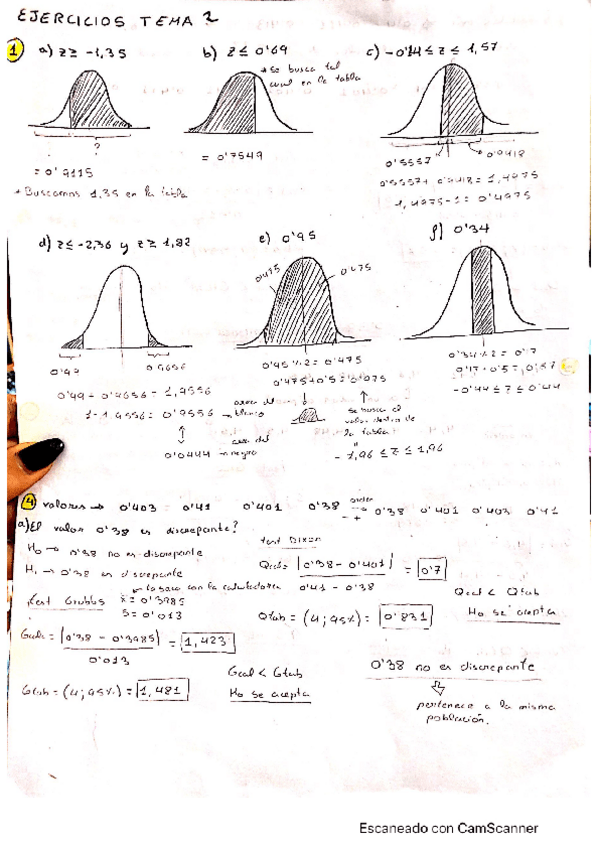 EJERCICIOS TEMA 2
1 a) z ≥ -1,35 b) z ≤ 0'69 c) -0'14 ≤ z ≤ 1,57
* Se busca tal
cual en la tabla
?
= 0'9115
= 0'7549
0'5557 0'9418
0'5557 + 0'9418 = 1,4975
1,4975 - 1 = 0'4975
* Buscamos 1,35 en la tabla
d) z ≤ -2,36 y z ≥ 1,82 e) 0'95 f) 0'34
0'475 0'475
0'99 0'9656
0'99 + 0'9656 = 1,9556
1 - 1,9556 = 0'9556 → area del blanco
0'0444 → area del negro
0'95 / 2 = 0'475
0'475 + 0'5 = 0'975
se busca el
valor dentro de
la tabla
- 1,96 ≤ z ≤ 1,96
0'34 / 2 = 0'17
0'17 + 0'5 = 0'67
-0'44 ≤ z ≤ 0'44
4 valores → 0'403 0'41 0'401 0'38 orden - + 0'38 0'401 0'403 0'41
a) El valor 0'38 es discrepante?
H₀ → 0'38 no es discrepante
H₁ → 0'38 es discrepante
→ lo saco con la calculadora
Test Grubbs x̄ = 0'3985
S = 0'013
Gcal = |0'38 - 0'3985| / 0'013 = 1,423
Gtab = (4; 95%) = 1,481
Gcal < Gtab
Ho se acepta
Test Dixon
Qcal = |0'38 - 0'401| / 0'41 - 0'38 = 0'7
Qtab = (4; 95%) = 0'831
Qcal < Qtab
Ho se acepta
0'38 no es discrepante
pertenece a la misma
población.
Escaneado con CamScanner